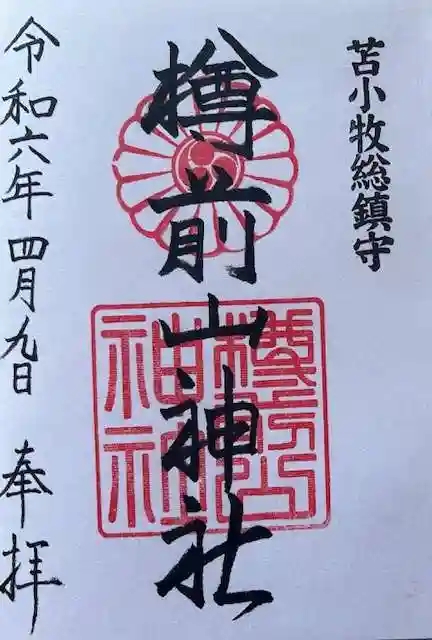 苫小牧総鎮守
樽前山神社
令和六年 四月九日 奉拝
樽前山
神社